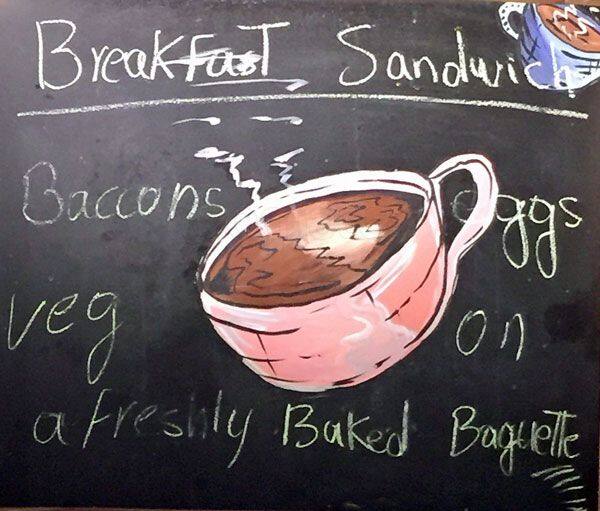 Breakfast Sandwich
Baccons eggs
veg on
a freshly Baked Baguette